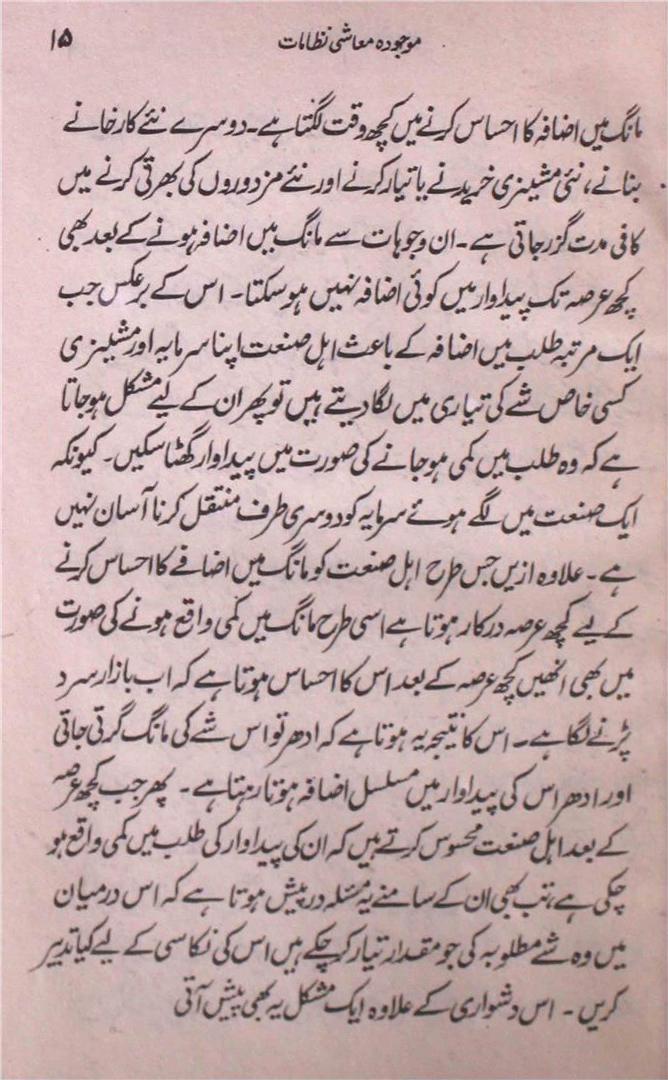 موجودہ معاشی نظامات ۱۵
مانگ میں اضافہ کا احساس کرنے میں کچھ وقت لگتا ہے۔ دوسرے نئے کارخانے
بنانے، نئی مشینری خریدنے یا تیار کرنے اور نئے مزدوروں کی بھرتی کرنے میں
کافی مدت گزر جاتی ہے۔ ان وجوہات سے مانگ میں اضافہ ہونے کے بعد بھی
کچھ عرصہ تک پیداوار میں کوئی اضافہ نہیں ہو سکتا۔ اس کے برعکس جب
ایک مرتبہ طلب میں اضافہ کے باعث اہل صنعت اپنا سرمایہ اور مشینری
کسی خاص شے کی تیاری میں لگا دیتے ہیں تو پھر ان کے لیے مشکل ہو جاتا
ہے کہ وہ طلب میں کمی ہو جانے کی صورت میں پیداوار گھٹا سکیں۔ کیونکہ
ایک صنعت میں لگے ہوئے سرمایہ کو دوسری طرف منتقل کرنا آسان نہیں
ہے۔ علاوہ ازیں جس طرح اہل صنعت کو مانگ میں اضافے کا احساس کرنے
کے لیے کچھ عرصہ درکار ہوتا ہے اسی طرح مانگ میں کمی واقع ہونے کی صورت
میں بھی انھیں کچھ عرصہ کے بعد اس کا احساس ہوتا ہے کہ اب بازار سرد
پڑنے لگا ہے۔ اس کا نتیجہ یہ ہوتا ہے کہ ادھر تو اس شے کی مانگ گرتی جاتی
اور ادھر اس کی پیداوار میں مسلسل اضافہ ہوتا رہتا ہے۔ پھر جب کچھ عرصہ
کے بعد اہل صنعت محسوس کرتے ہیں کہ ان کی پیداوار کی طلب میں کمی واقع ہو
چکی ہے، تب بھی ان کے سامنے یہ مسئلہ درپیش ہوتا ہے کہ اس درمیان
میں وہ شے مطلوبہ کی جو مقدار تیار کر چکے ہیں اس کی نکاسی کے لیے کیا تدبیر
کریں۔ اس دشواری کے علاوہ ایک مشکل یہ بھی پیش آتی